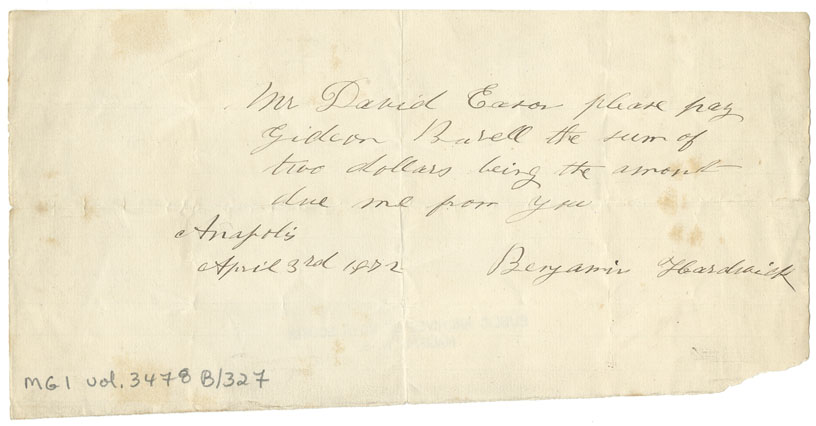 Mr David Eason please pay
Gideon Barell the sum of
two dollars being the amont
due me from you
Anapolis
April 3rd 1872
Benjamin Hardwick
MG1 vol. 3478 B/327